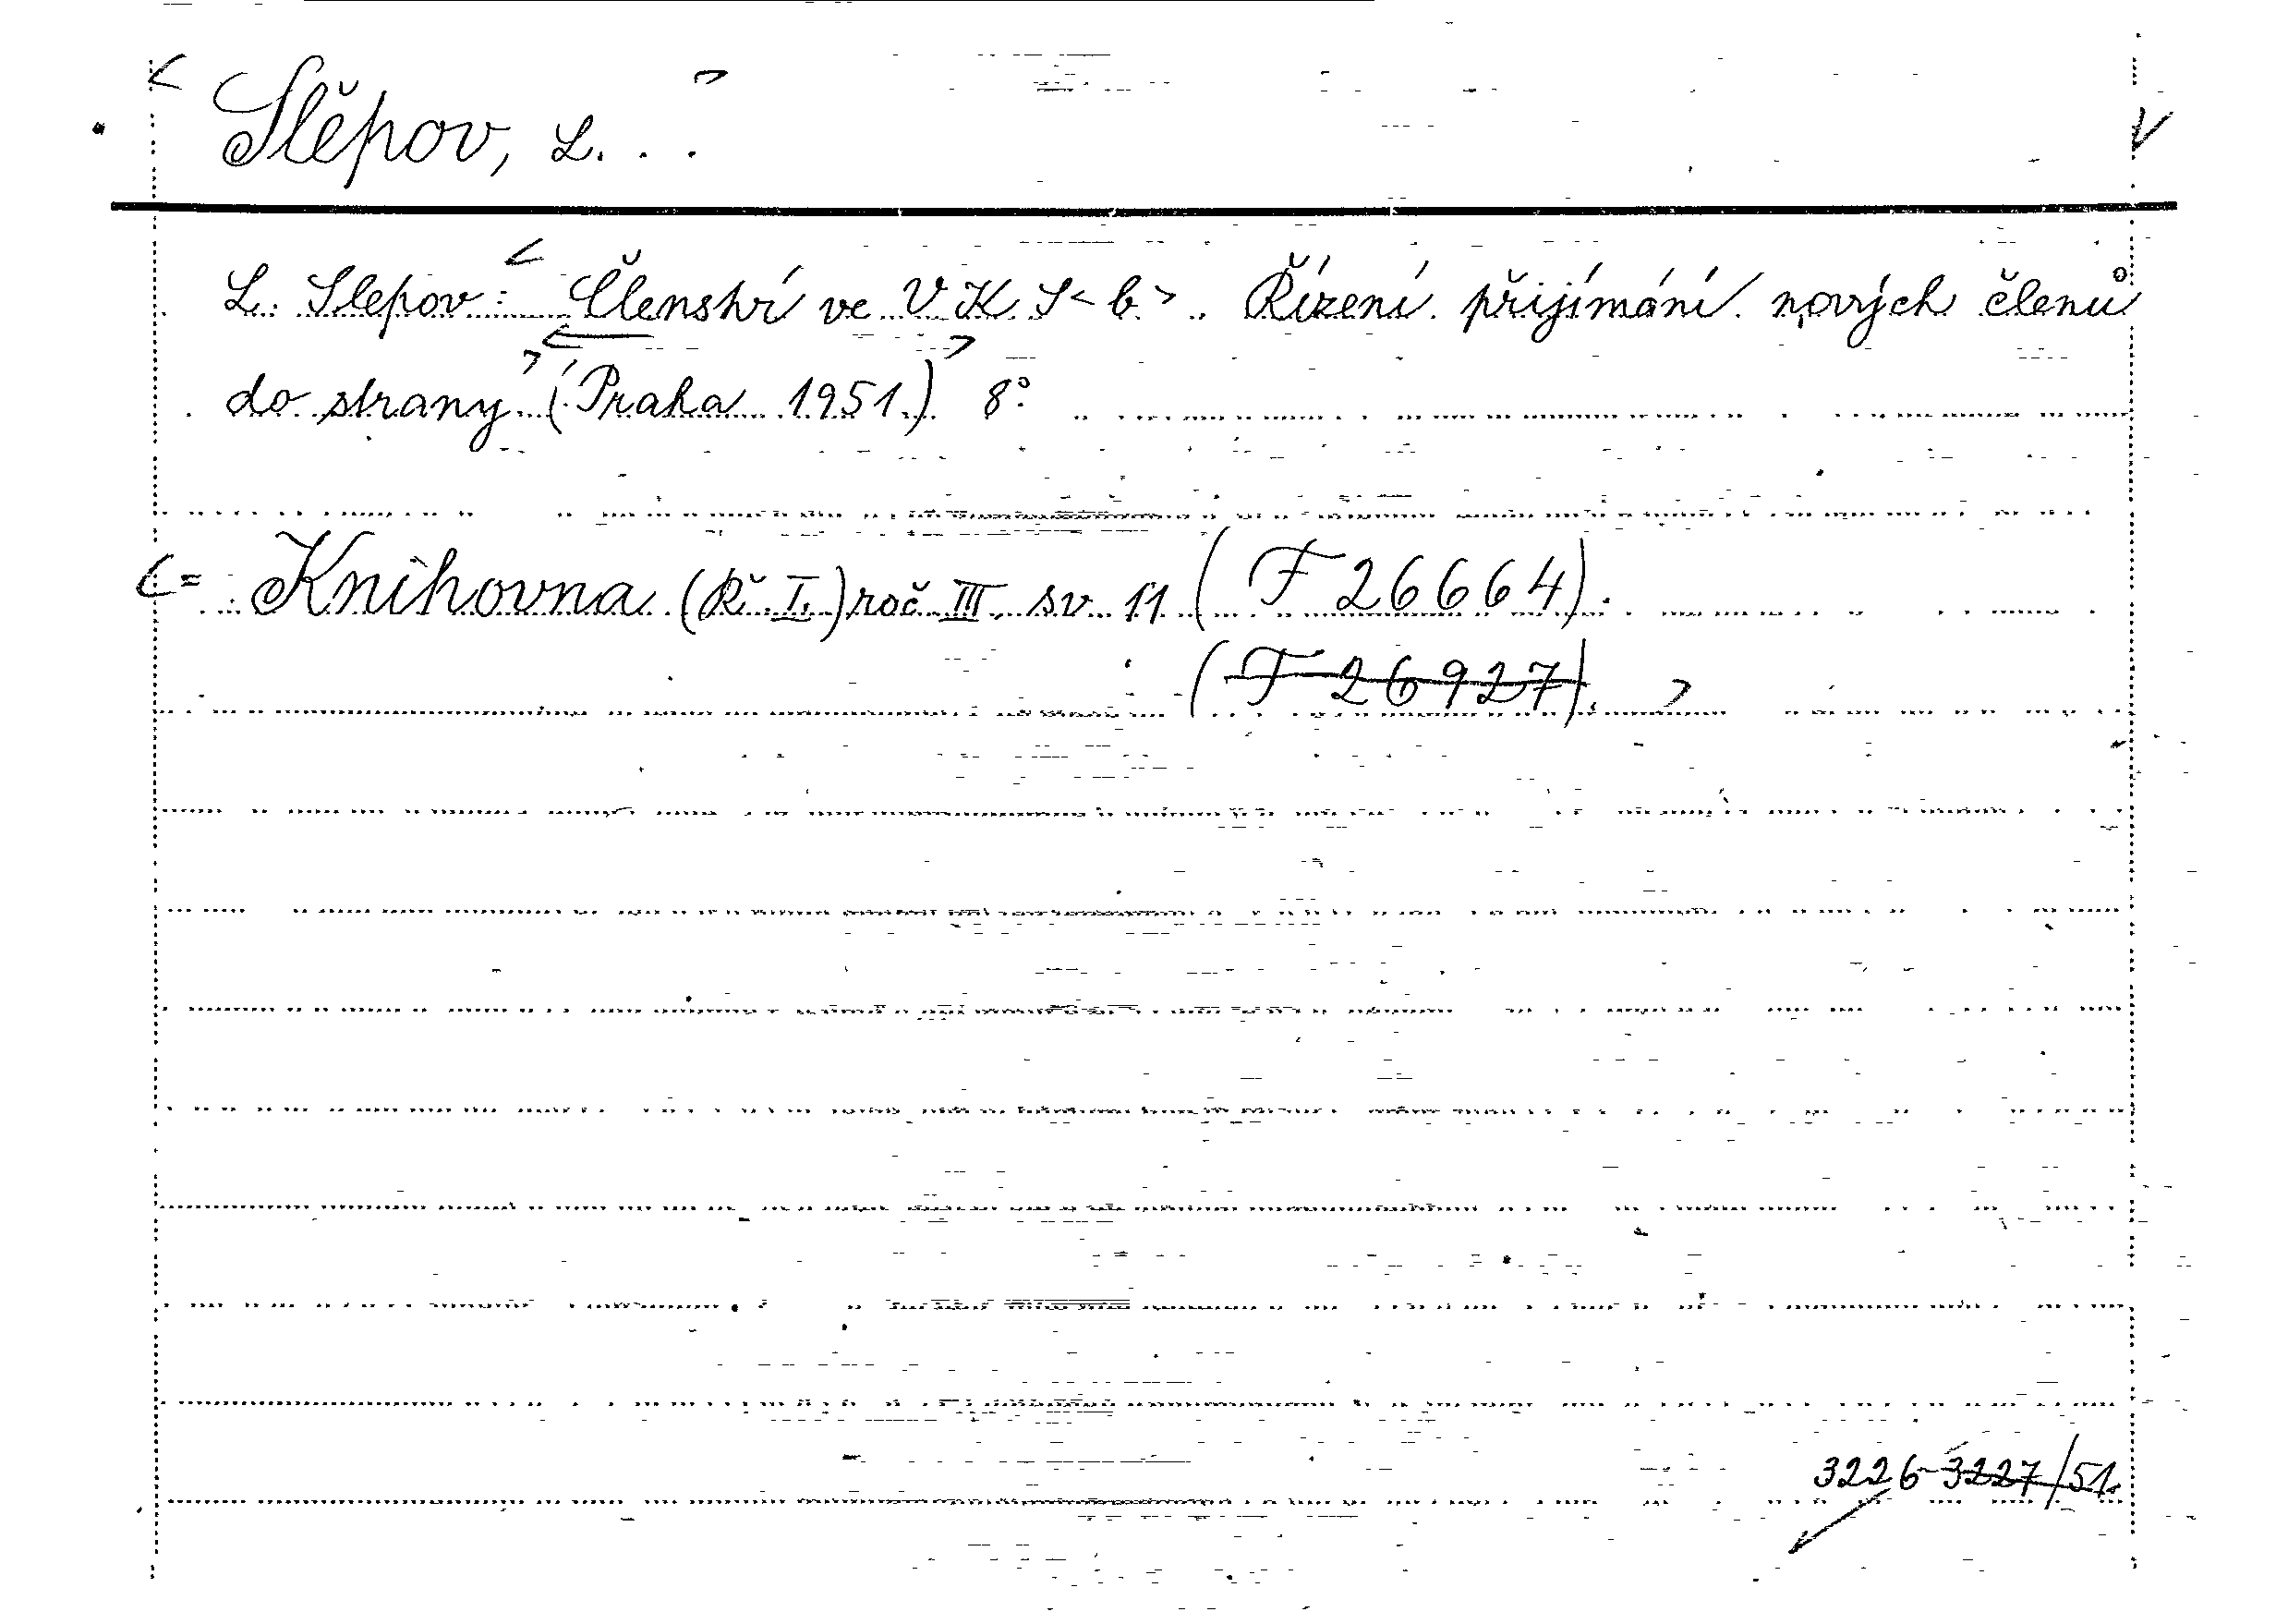 < Slěpov, L. . . >
V
L. Slepov: < Členství ve V K S < b >. Řízení přijímání nových členů
do strany > (Praha 1951.) 8°
<= Knihovna (Ř. I.) roč. III. sv. 11 (F 26664).
(F 26927). >
3226-3227/51.